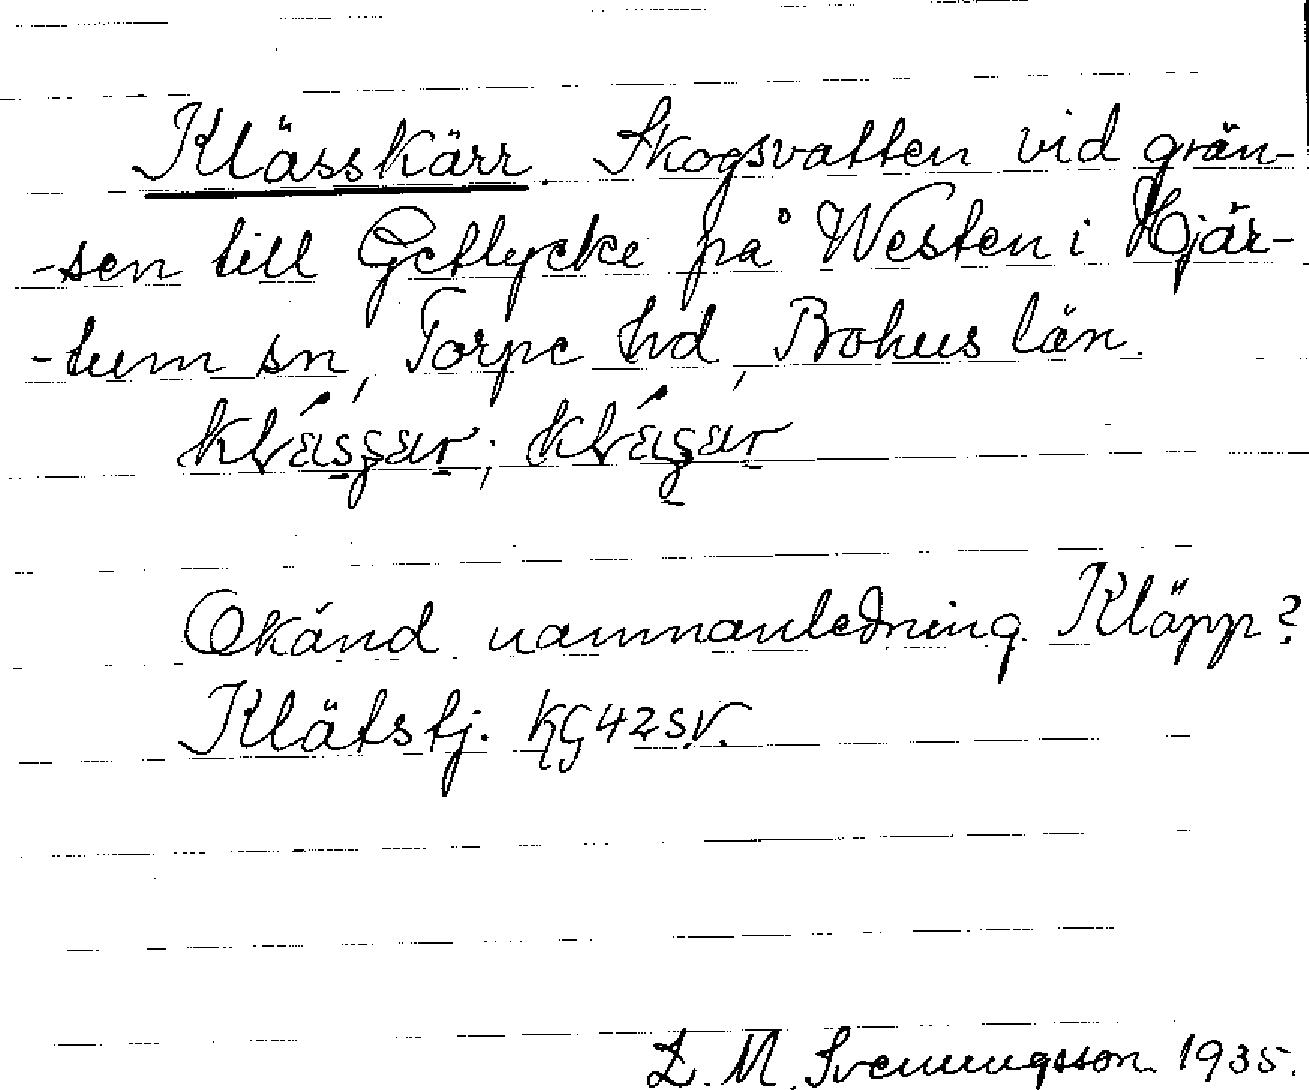 Klässkärr. Skogsvatten vid grän-
-sen till Getlycke på Westen i Hjär-
-tum sn, Torpe hd, Bohus län.
Okänd namnanledning. Kläpp?
Klätstj. KG42SV.
L. M. Svenungsson 1935.